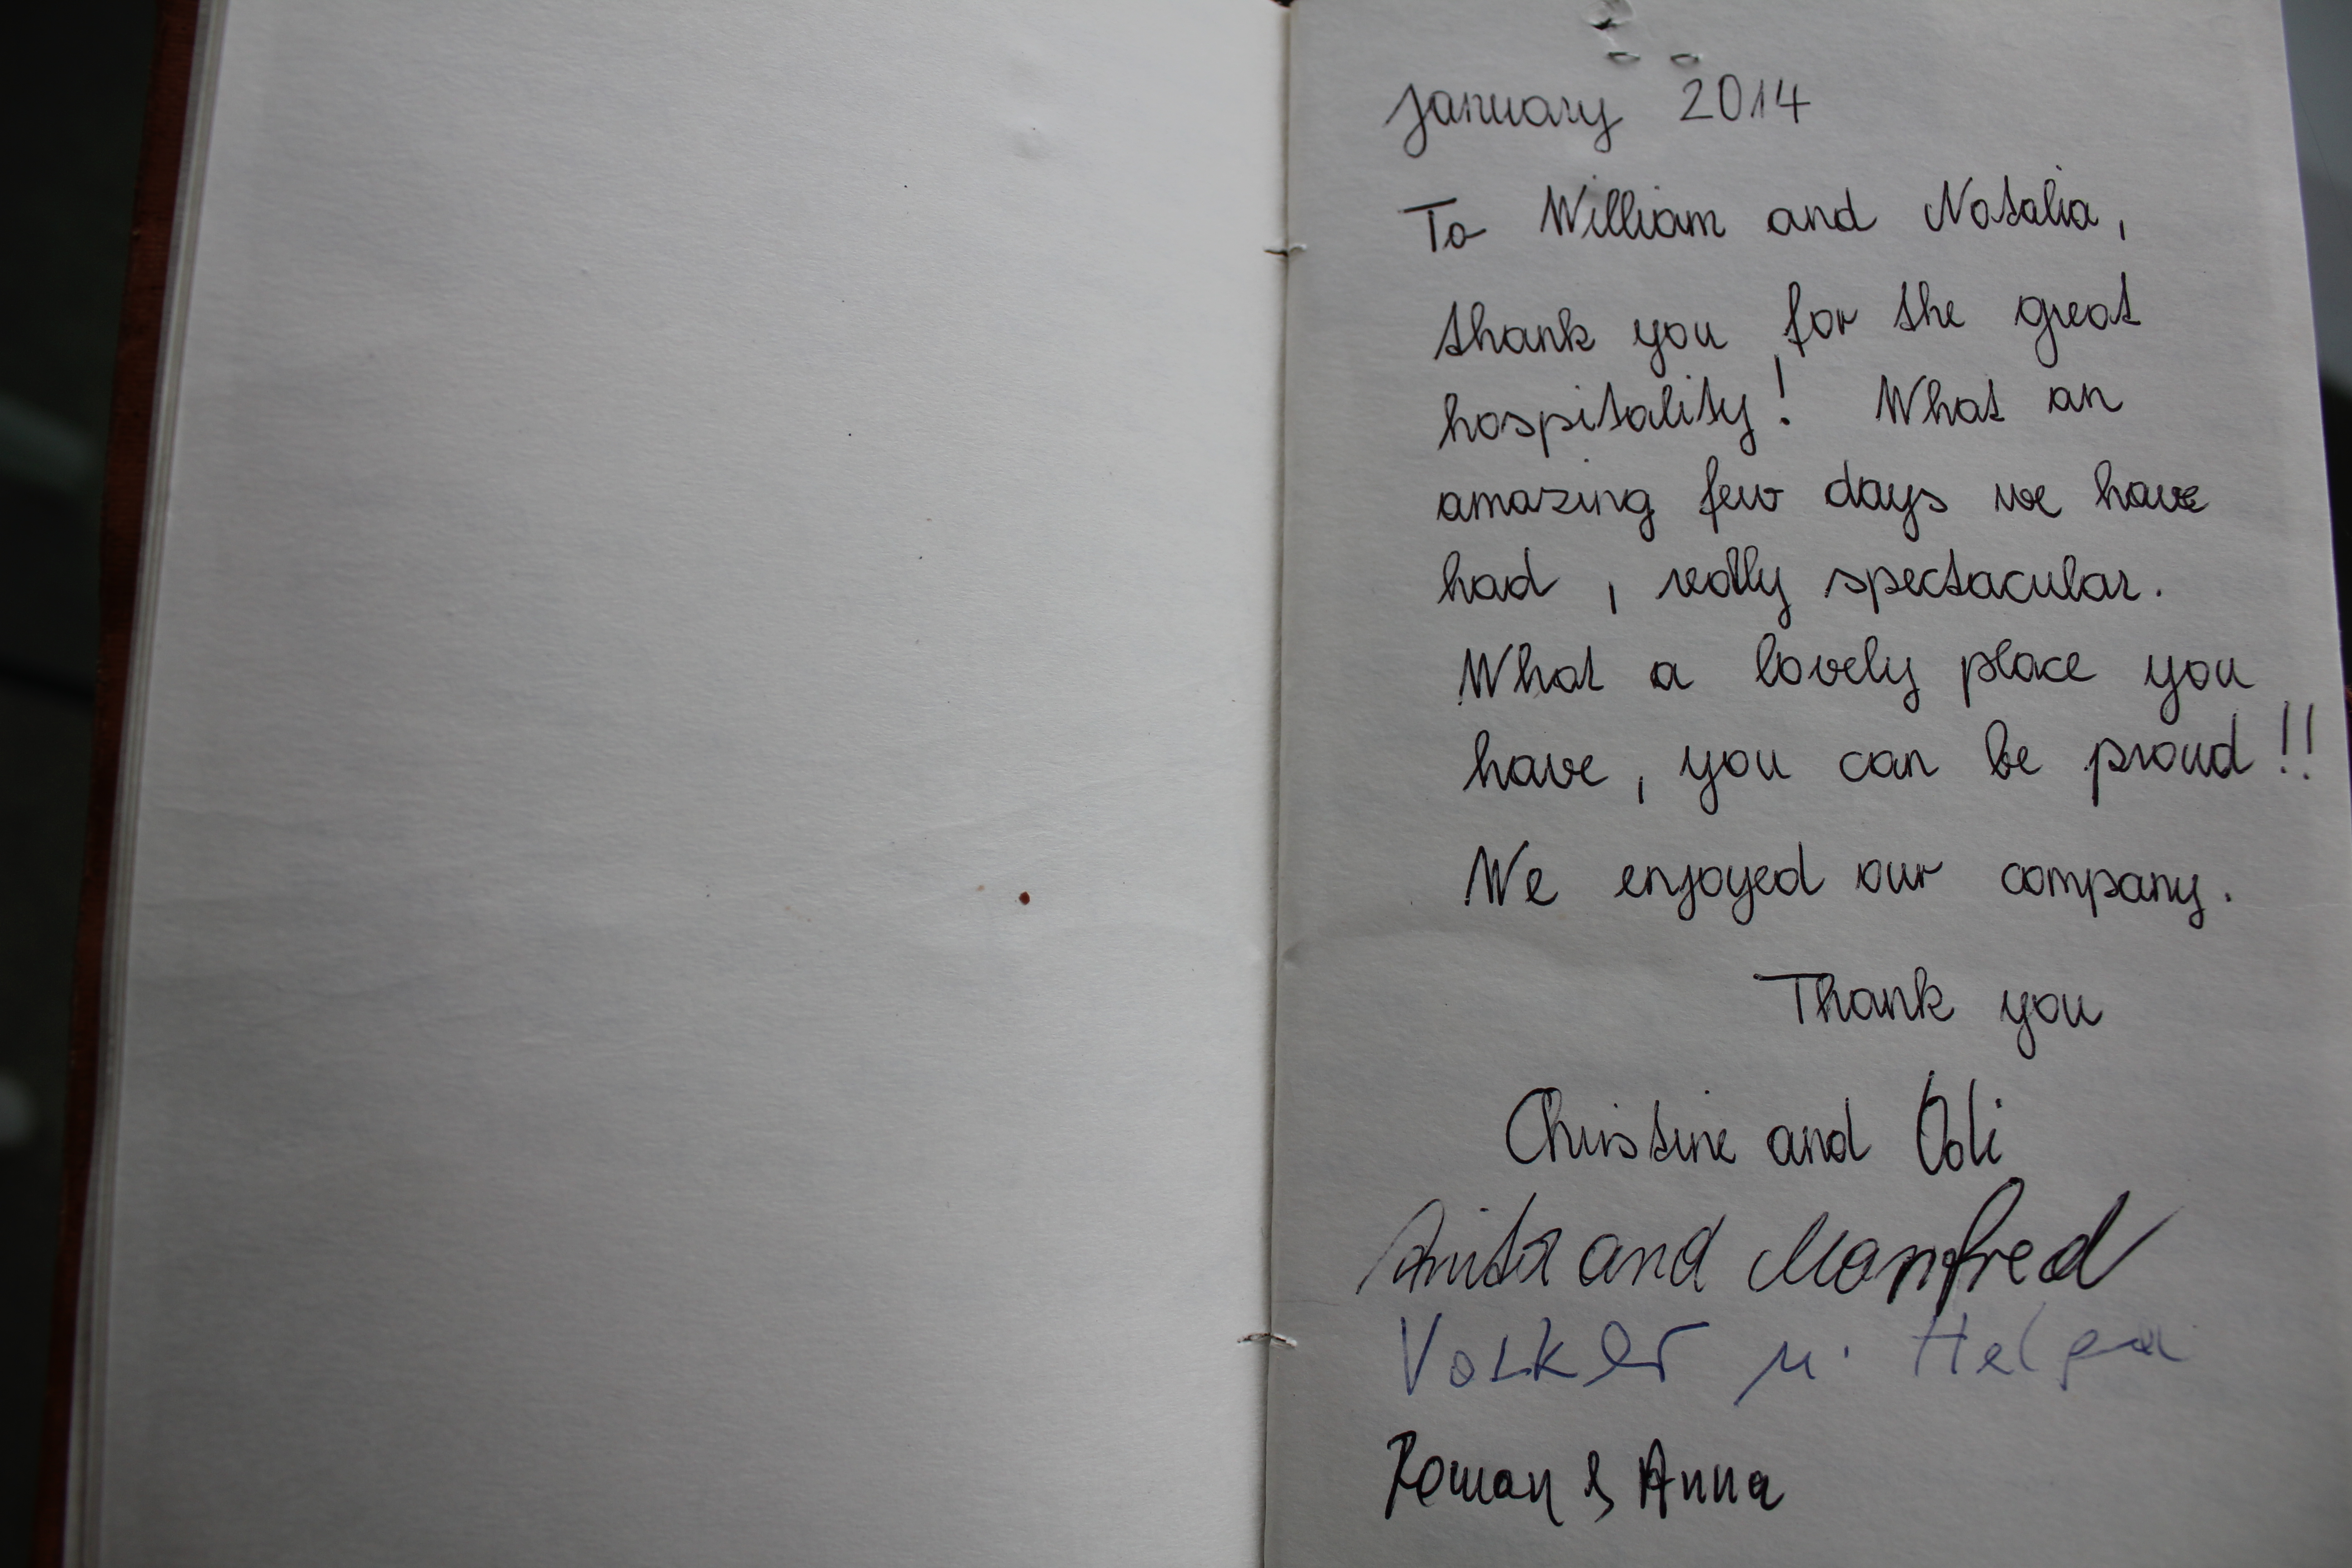 January 2014
To William and Natalia,
thank you for the great
hospitality! What an
amazing few days we have
had, really spectacular.
What a lovely place you
have, you can be proud!!
We enjoyed our company.
Thank you
Christine and
Anita and Manfred
Volker u. Helga
Roman & Anna